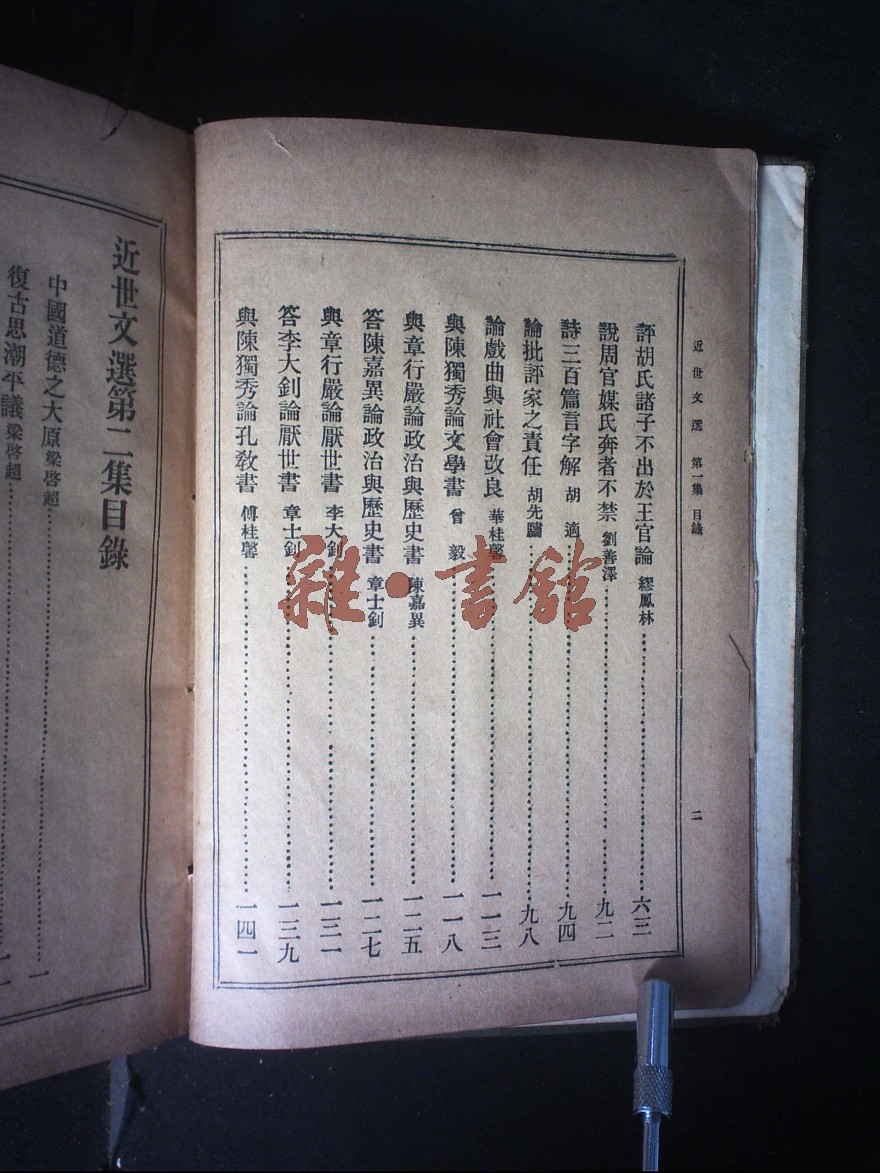 近世文選 第一集 目錄
二
評胡氏諸子不出於王官論 繆鳳林 六三
說周官媒氏奔者不禁 劉善澤 九二
詩三百篇言字解 胡適 九四
論批評家之責任 胡先驌 九八
論戲曲與社會改良 華桂馨 一一三
與陳獨秀論文學書 曾毅 一一八
與章行嚴論政治與歷史書 陳嘉異 一二五
答陳嘉異論政治與歷史書 章士釗 一二七
與章行嚴論厭世書 李大釗 一三一
答李大釗論厭世書 章士釗 一三九
與陳獨秀論孔教書 傅桂馨 一四一
近世文選第二集目錄
中國道德之大原 梁啓超 一
復古思潮平議 梁啓超
雜·書館